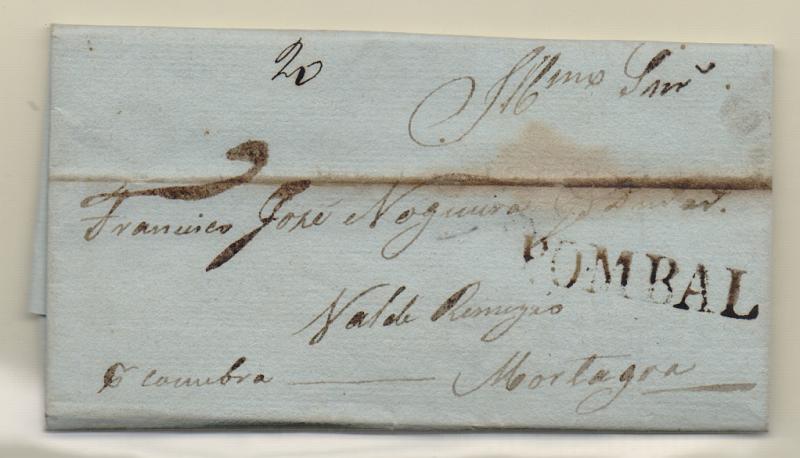 20
Illmo Snr
Francisco José Nogueira
POMBAL
Val de Remigio
P coimbra — Mortagoa